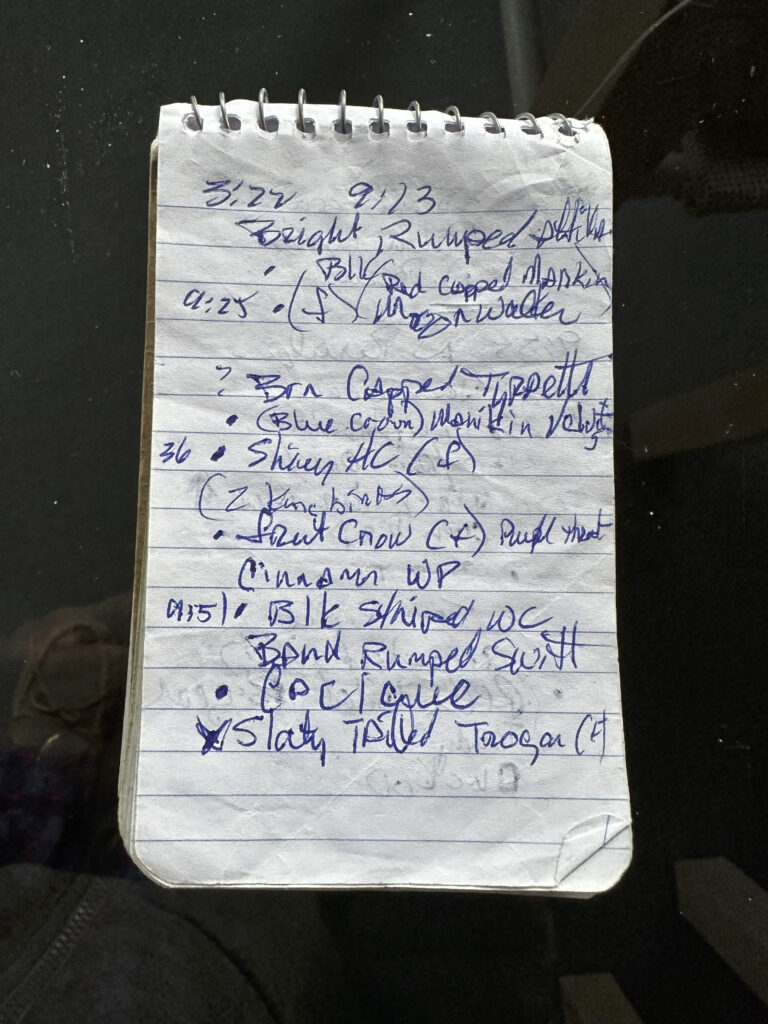 3:22 9:13
Bright Rumped Attila
• Blk (Red Capped Manakin)
9:25 • (f)
? Brn Capped Tyrpett
• (Blue Crown) Manikin
36 • Shiny HC (f)
(2 Kingbirds)
• Fruit Crow (f) Purpl throat
Cinnamn WP
9:51 • Blk Striped WC
Band Rumped Swift
• Cacique
Slaty Tailed Trogan (f)